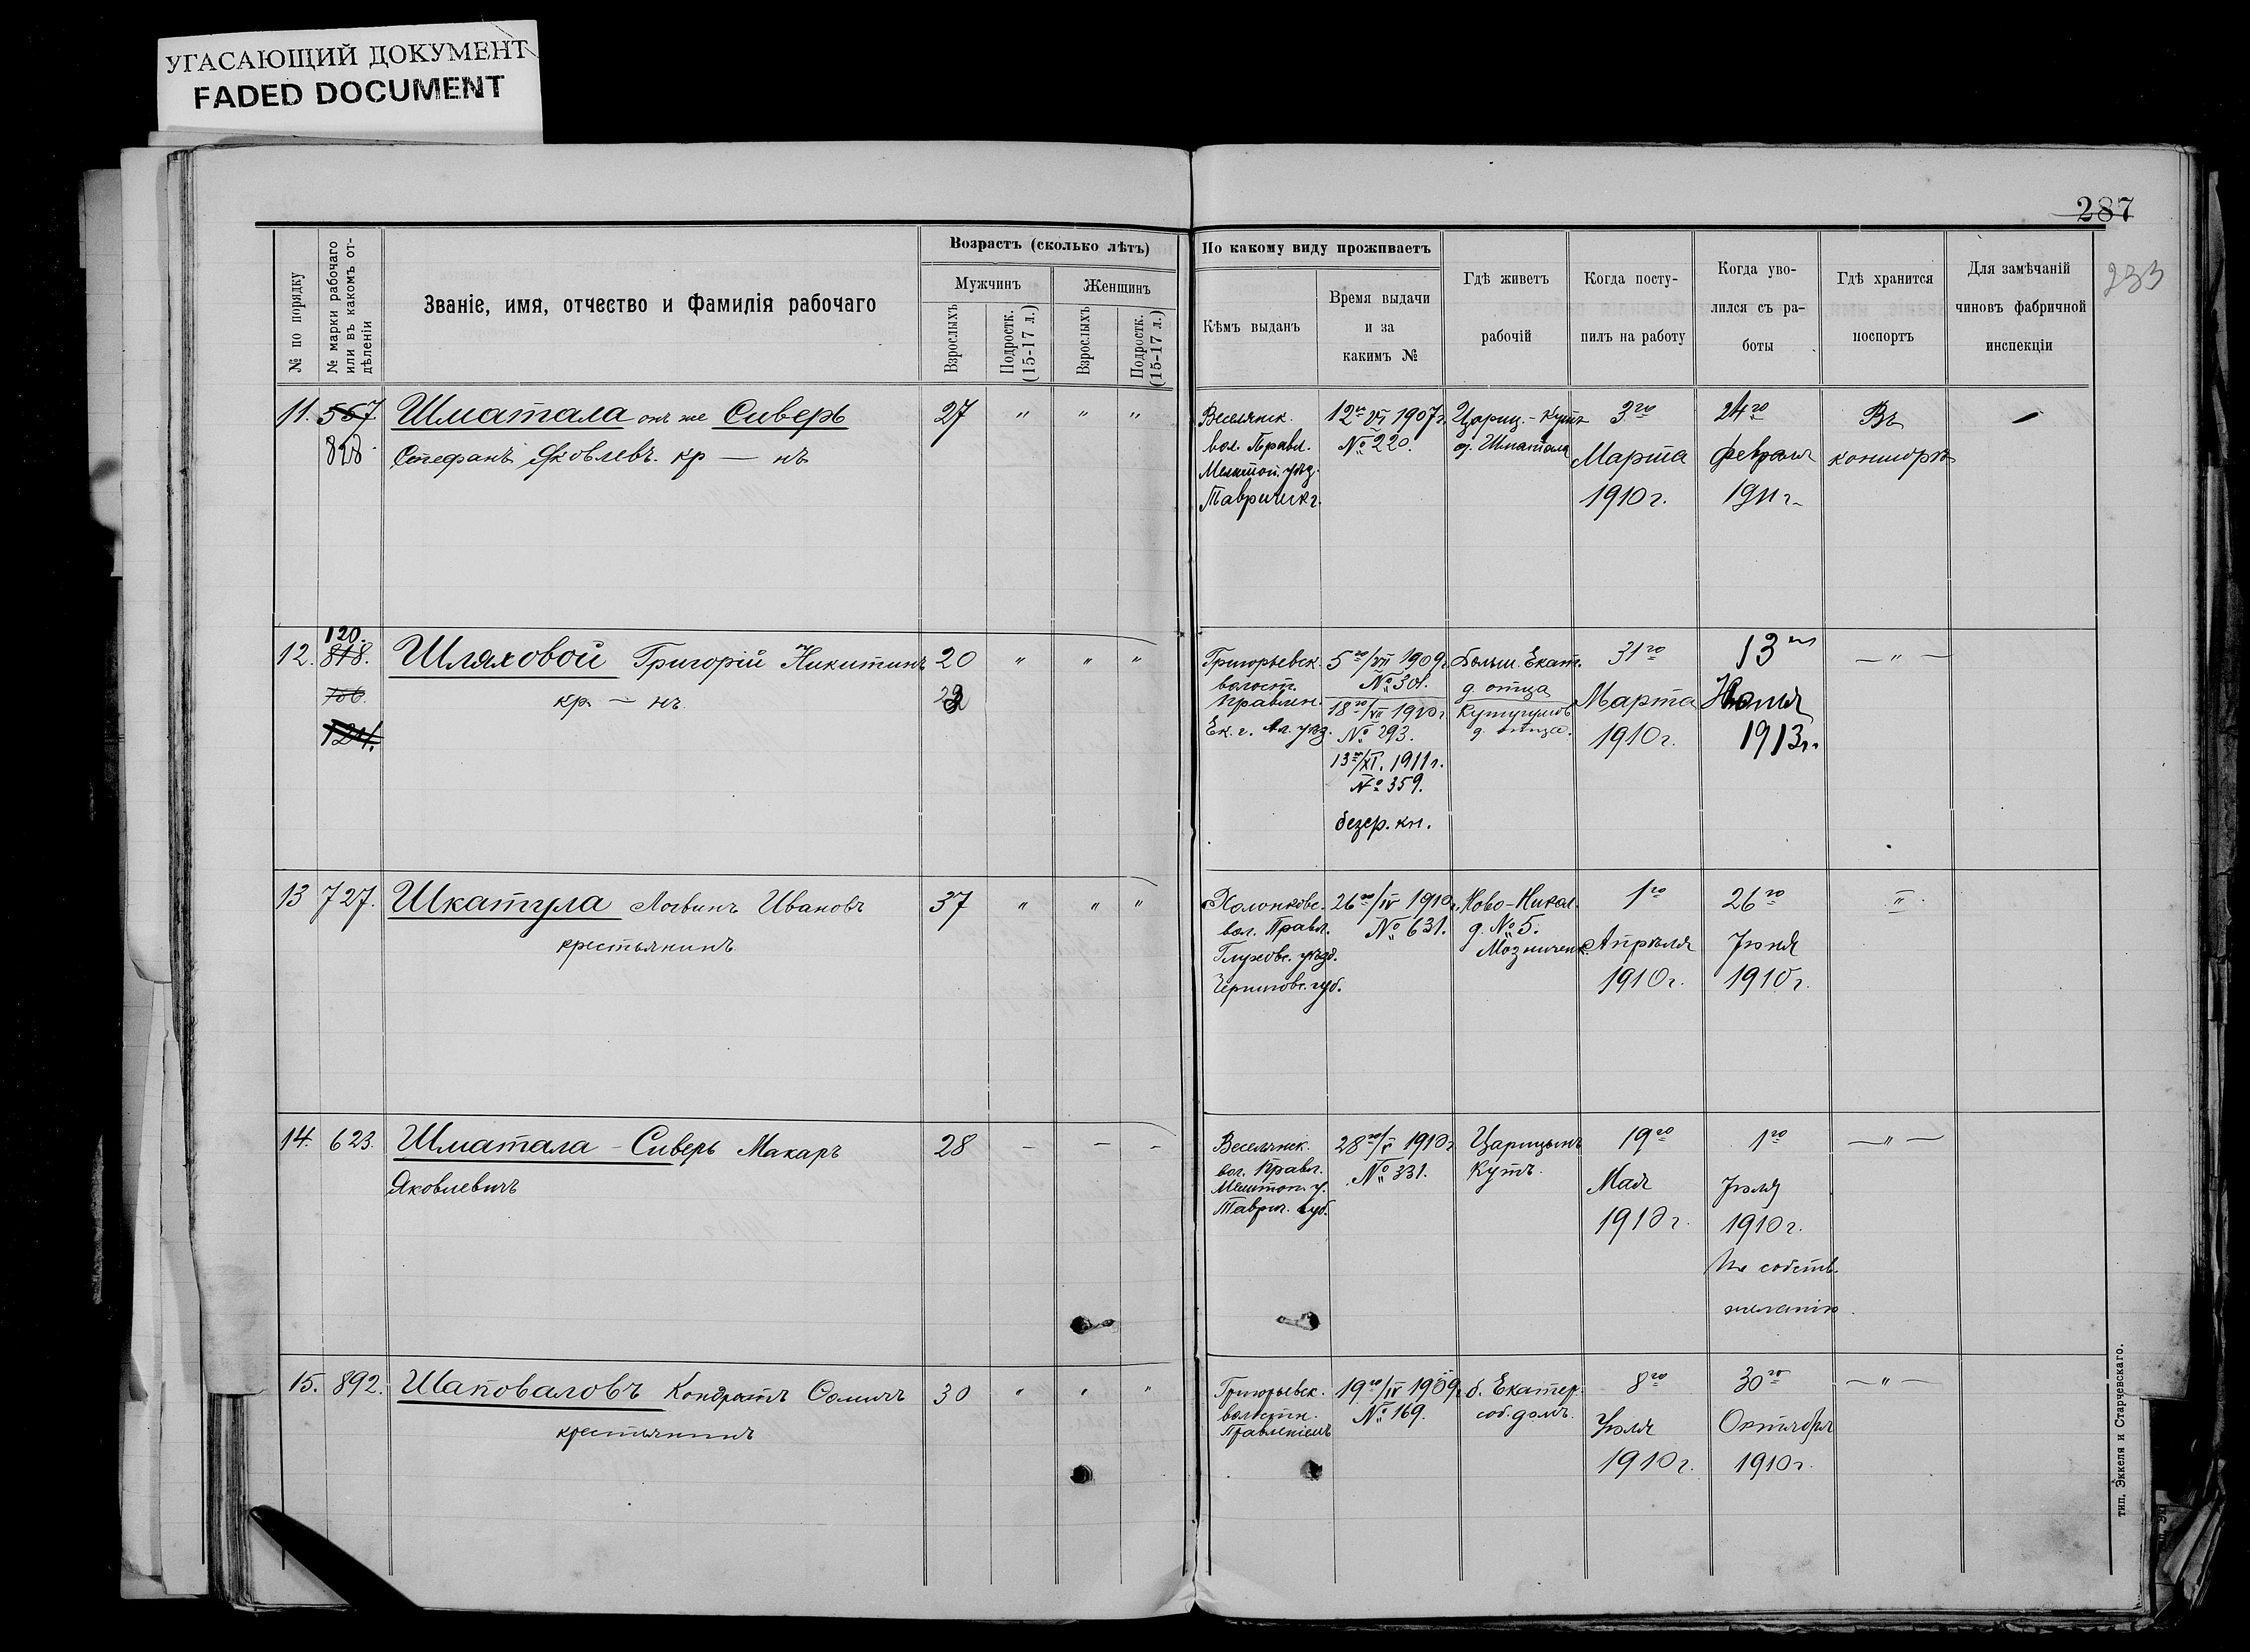 УГАСАЮЩИЙ ДОКУМЕНТ
FADED DOCUMENT
287
233
№ по порядку
№ марки рабочаго
или въ какомъ от-
дѣленіи
Званіе, имя, отчество и фамилія рабочаго
Возрастъ (сколько лѣтъ)
Мужчинъ
Женщинъ
Взрослыхъ
Подростк.
(15-17 л.)
Взрослыхъ
Подростк.
(15-17 л.)
По какому виду проживаетъ
Кѣмъ выданъ
Время выдачи
и за
какимъ №
Гдѣ живетъ
рабочій
Когда посту-
пилъ на работу
Когда уво-
лился съ ра-
боты
Гдѣ хранится
поспортъ
Для замѣчаній
чиновъ фабричной
инспекціи
11.
557
828.
Шматала онъ же Сиверь
Стефанъ Яковлевъ. кр — нъ
27 " " "
Веселянск.
вол. Правл.
Мелитоп. уѣз.
Тавричск г.
12го VI 1907г.
№ 220.
Цариц.-Кутъ
д. Шматала
3го
Марта
1910 г.
24го
Февраля
1911 г.
Въ
конторѣ
—
12.
120.
818.
706.
124.
Шляховой Григорій Никитинъ
кр — нъ
20 " " "
Григорьевск.
волост.
Правлен.
Ек. г. Ал. уѣз.
5го/VII 1909г.
№ 301.
18го/VII 1910г.
№ 293.
13го/XI. 1911 г.
№ 359.
безср. кн.
Больш. Екат.
д. отца
Кутугумъ
д. отца.
31го
Марта
1910 г.
13го
1913 г.
— " —
13
727.
Шкатула Логвинъ Ивановъ
крестьянинъ
37 " " "
вол. Правл.
Глуховс. уѣзд.
Черниговс. губ.
26го/IV 1910г.
№ 631.
Ново-Никол.
д. № 5.
Мозниченк.
1го
Апрѣля
1910 г.
26го
Іюня
1910 г.
"
14.
623.
Шматала - Сиверь Макаръ
Яковлевичъ
28 — — —
Веселянск.
вол. Правл.
Мелитоп. у.
Таврич. губ.
28го/V 1910г
№ 331.
Царицынъ
Кутъ.
19го
Мая
1910 г.
1го
Іюля
1910 г.
По собств.
желанію.
— " —
15.
892.
Шаповаловъ Кондратъ Ѳомичъ
крестьянинъ
30 " " "
Григорьевск.
волостн.
Правленіемъ
19го/IV 1909г.
№ 169.
б. Екатер.
соб. домъ.
8го
Іюля
1910 г.
30го
Октября
1910 г.
— " —
тип. Эккеля и Старчевскаго.